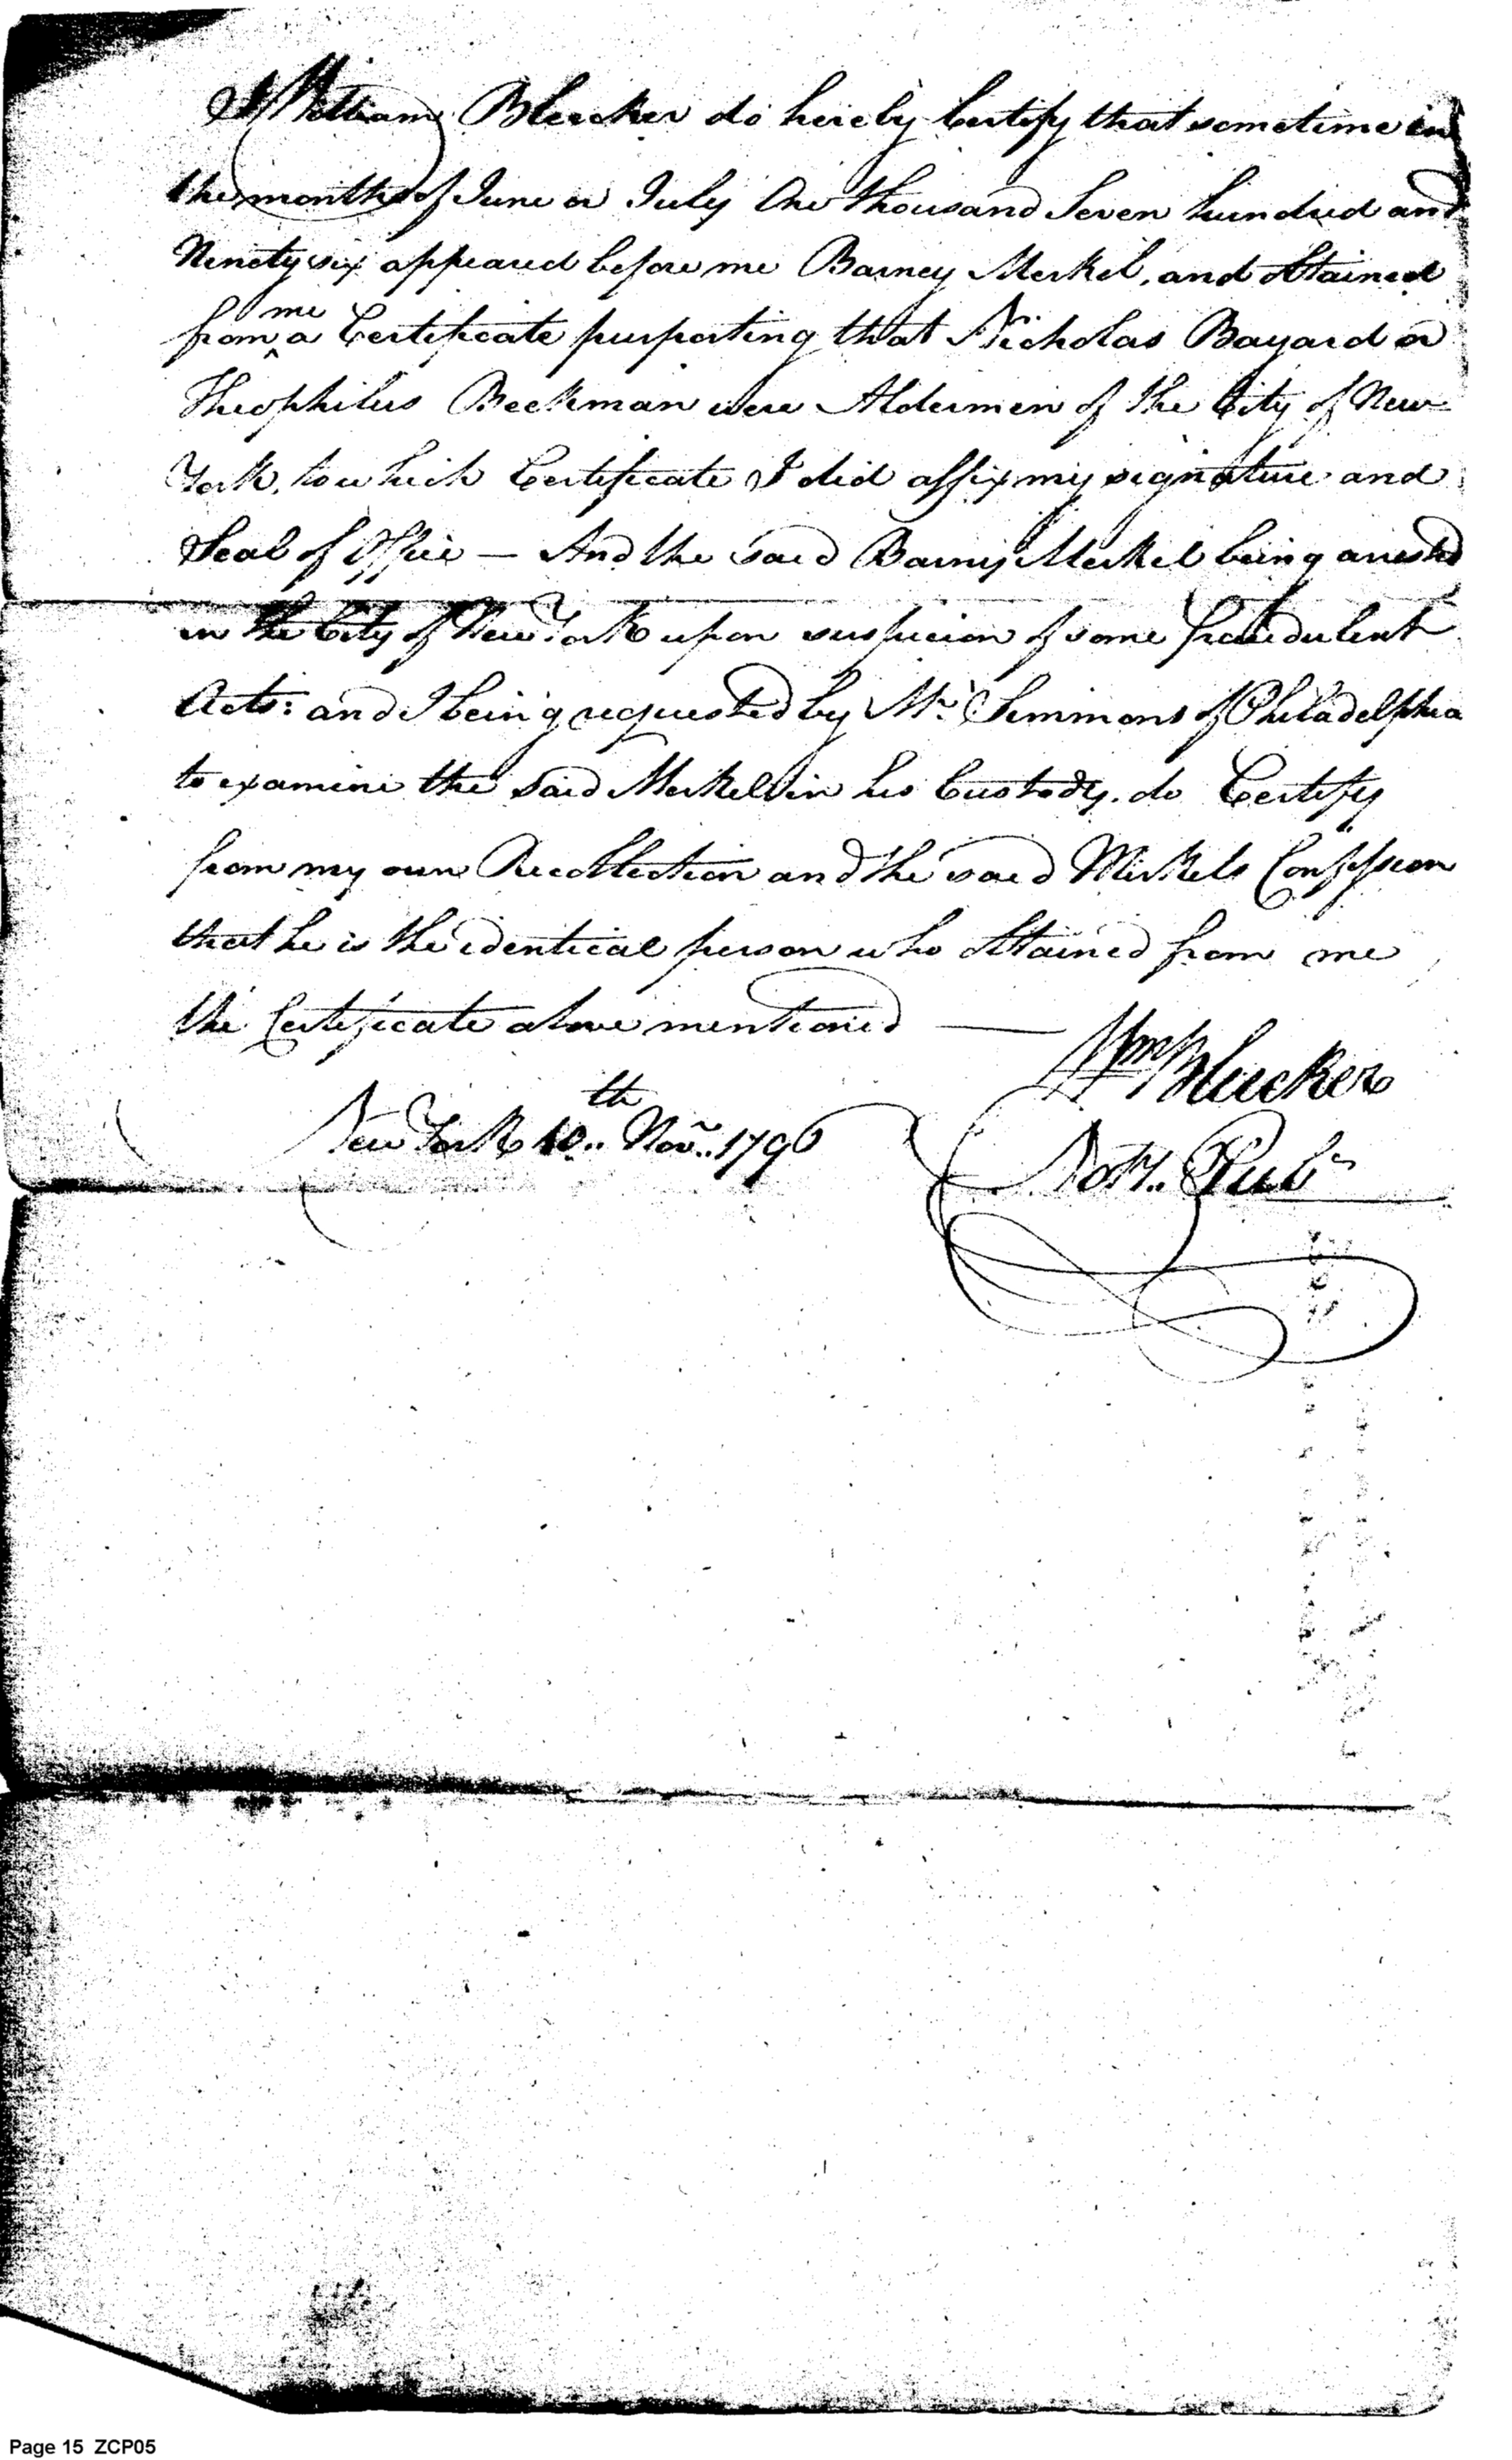 I William Bleecker do hereby Certify that sometime in
the months of June or July One thousand Seven hundred and
Ninety six appeared before me Barney Merkel, and Obtained
from me a Certificate purporting that Nicholas Bayard or
Theophilus Beekman were Aldermen of the City of New
York, to which Certificate I did affix my signature and
Seal of Office — And the said Barney Merkel being arrested
in the City of New York upon suspicion of some fraudulent
Acts: and I being requested by Mr. Simmons of Philadelphia
to examine the said Merkel in his Custody. do Certify
from my own Recollection and the said Merkels Confession
that he is the identical person who Obtained from me
the Certificate above mentioned —
Wm Bleecker
New York 10th Novr. 1796
Noty. Pub
Page 15 ZCP05